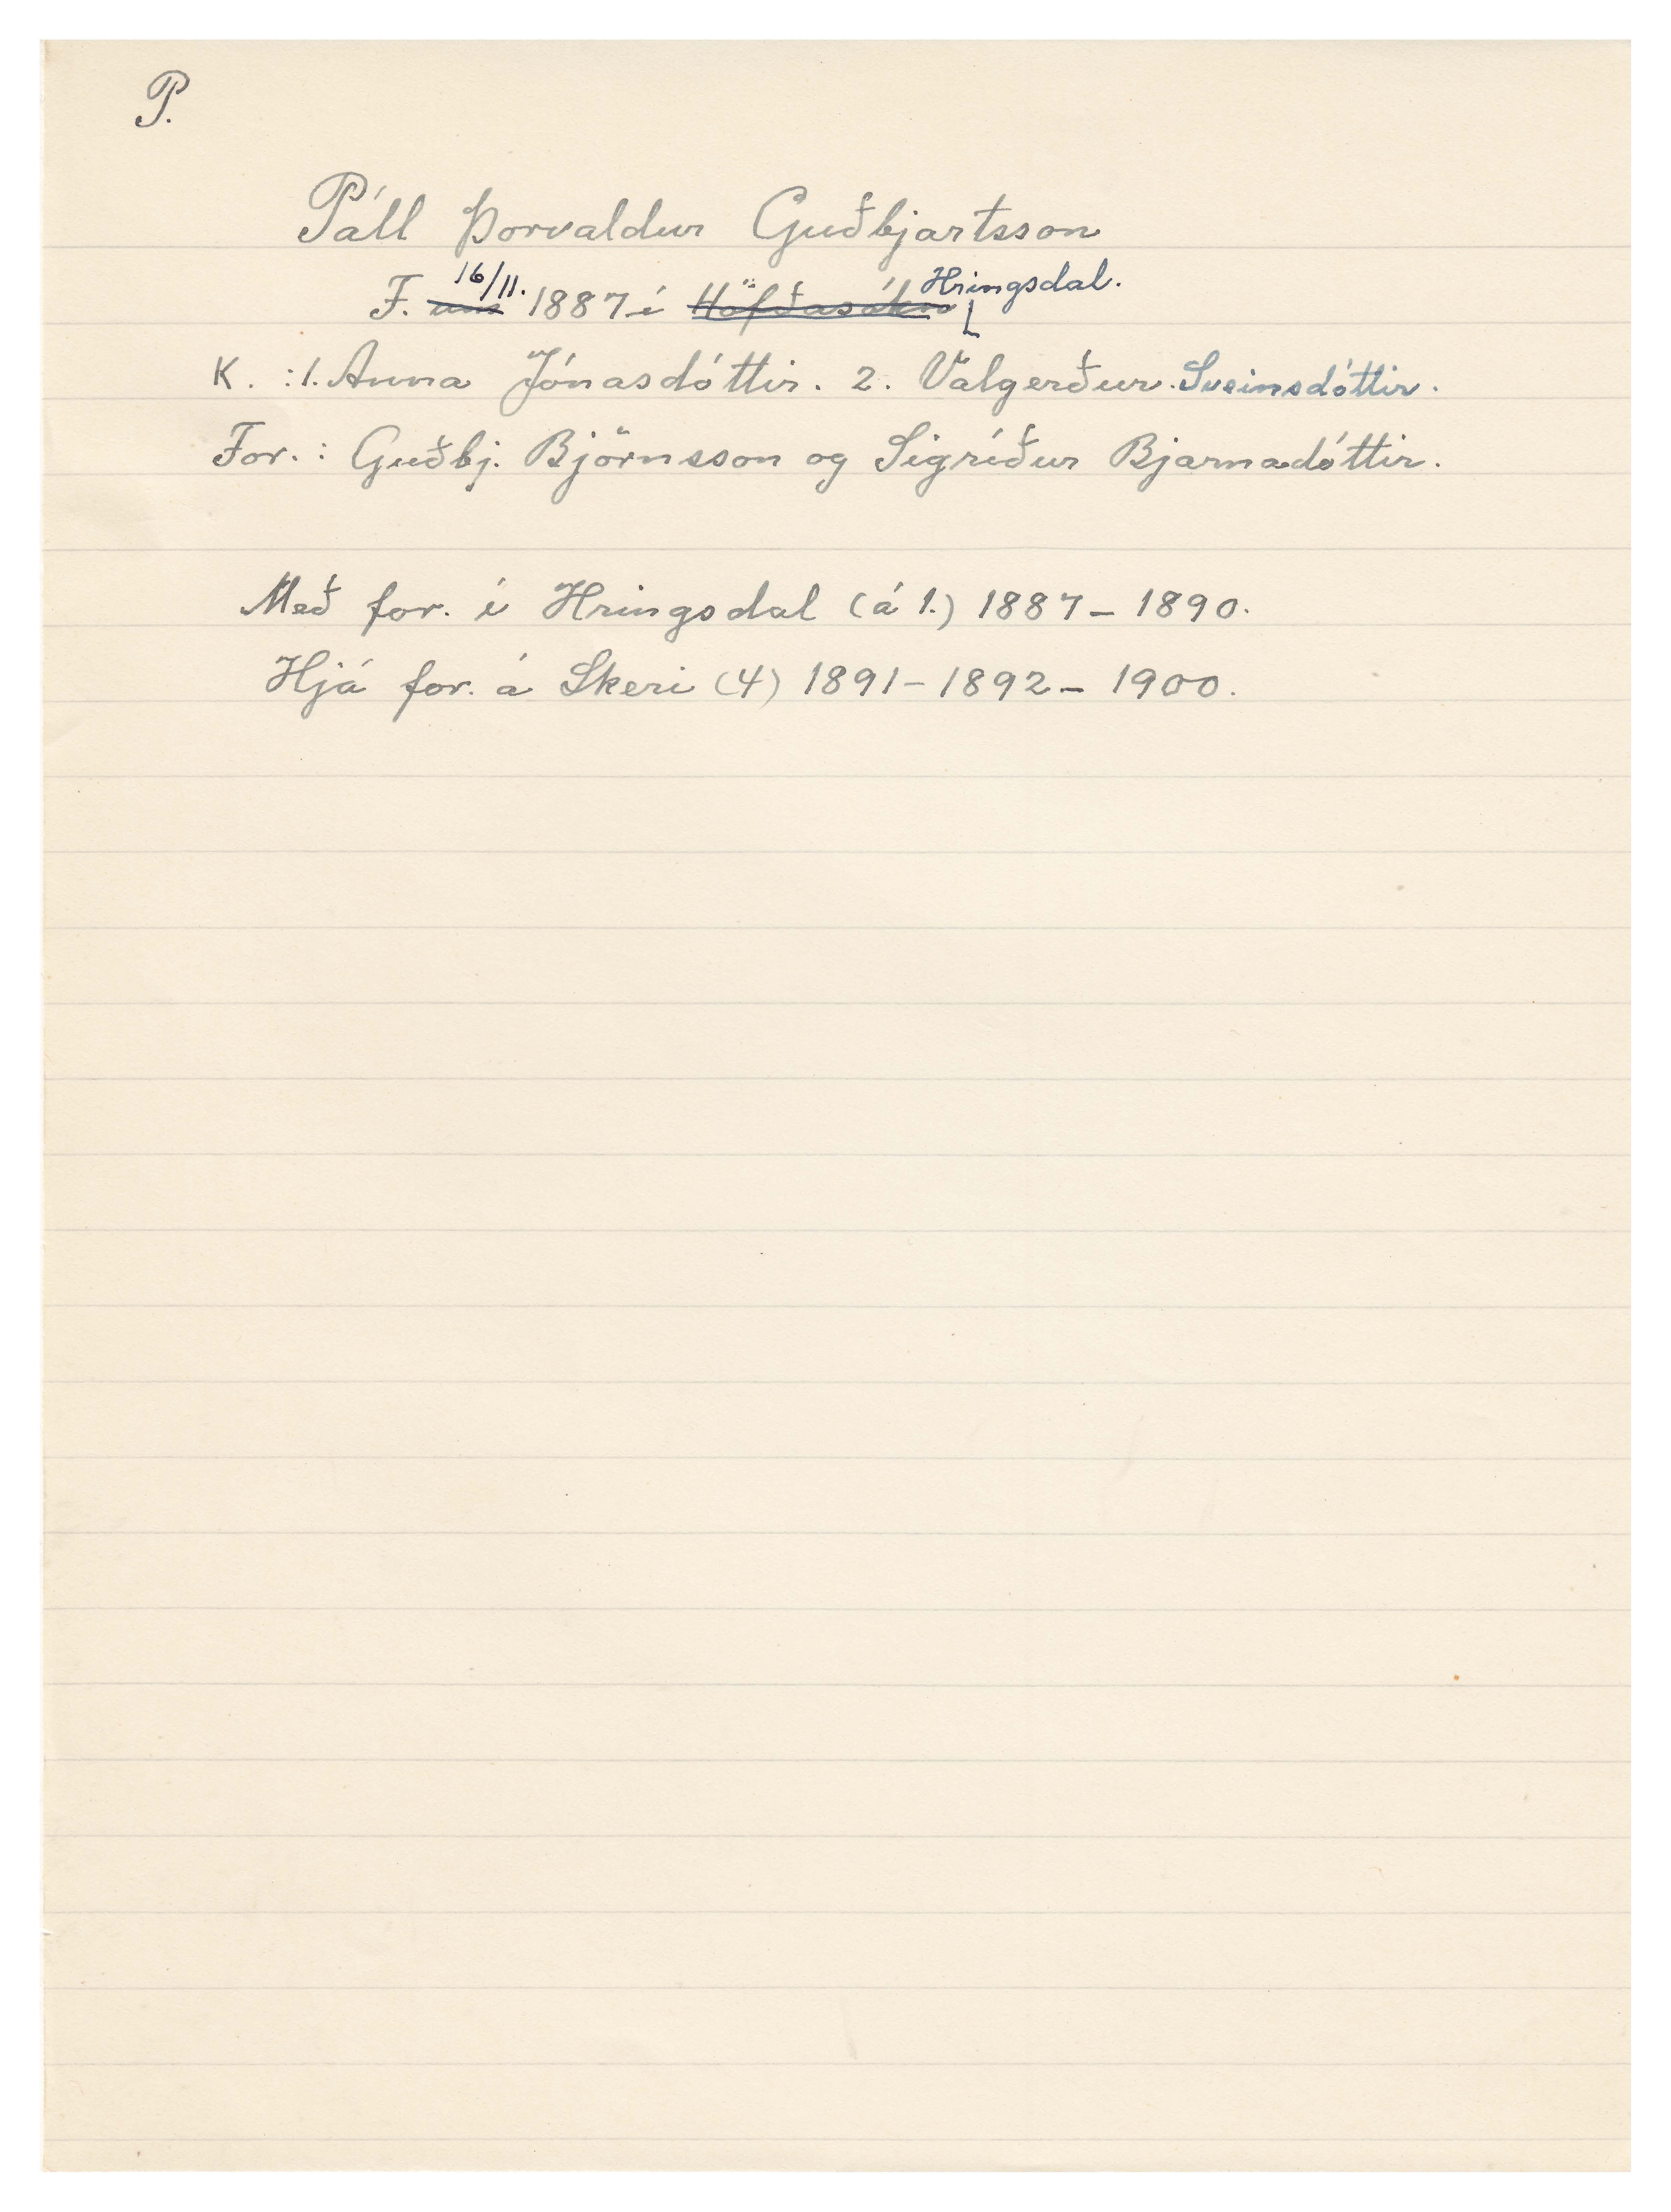 P.
Páll Þorvaldur Guðbjartsson
F. um 16/11. 1887 í Höfðasókn Hringsdal.
K. : 1. Anna Jónasdóttir. 2. Valgerður. Sveinsdóttir.
For. : Guðbj. Björnsson og Sigríður Bjarnadóttir.
Með for. í Hringsdal (á 1.) 1887 - 1890.
Hjá for. á Skeri (4) 1891 - 1892 - 1900.